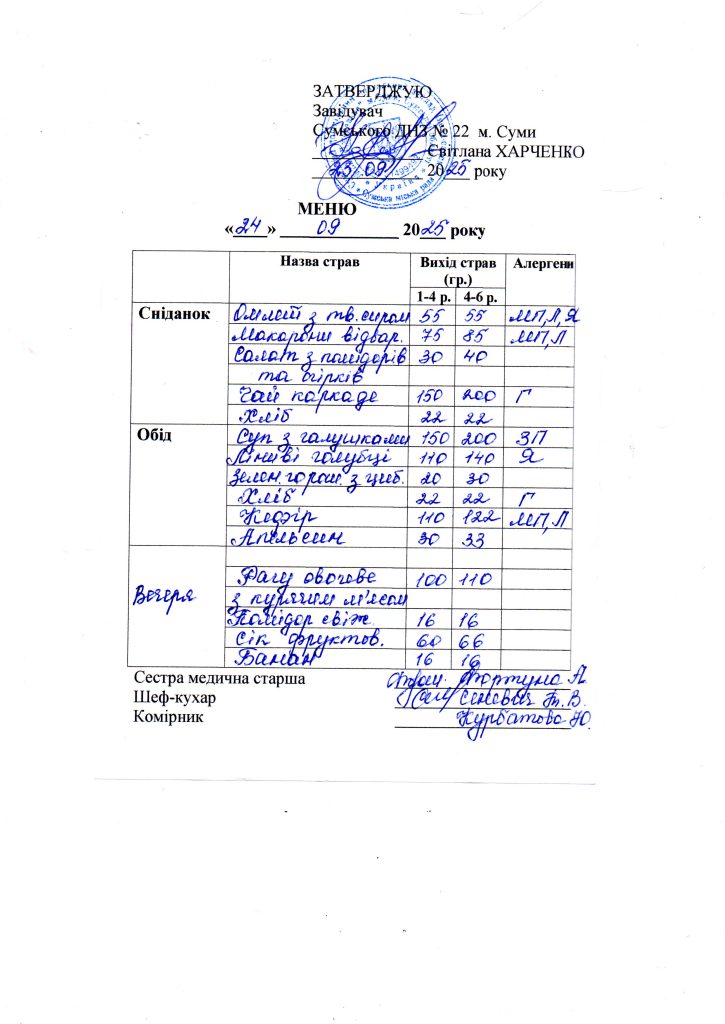 ЗАТВЕРДЖУЮ
Завідувач
Сумського ДНЗ № 22 м. Суми
Світлана ХАРЧЕНКО
23 09 2025 року
МЕНЮ
«24» 09 2025 року
Назва страв Вихід страв (гр.) Алергени
1-4 р. 4-6 р.
Сніданок Омлет з тв. сиром 55 55 МП,Л,Я
Макарони відвар. 75 85 МП,Л
Салат з помідорів 30 40
та огірків
Чай каркаде 150 200 Г
Хліб 22 22
Обід Суп з галушками 150 200 ЗП
Ліниві голубці 110 140 Я
Зелен. горош. з циб. 20 30
Хліб 22 22 Г
Кефір 110 122 МП,Л
Апельсин 30 33
Вечеря Рагу овочеве 100 110
з курячим м'ясом
Помідор свіж. 16 16
Сік фруктов. 60 66
Банан 16 16
Сестра медична старша Фортуна А
Шеф-кухар
Комірник Курбатова Ю.